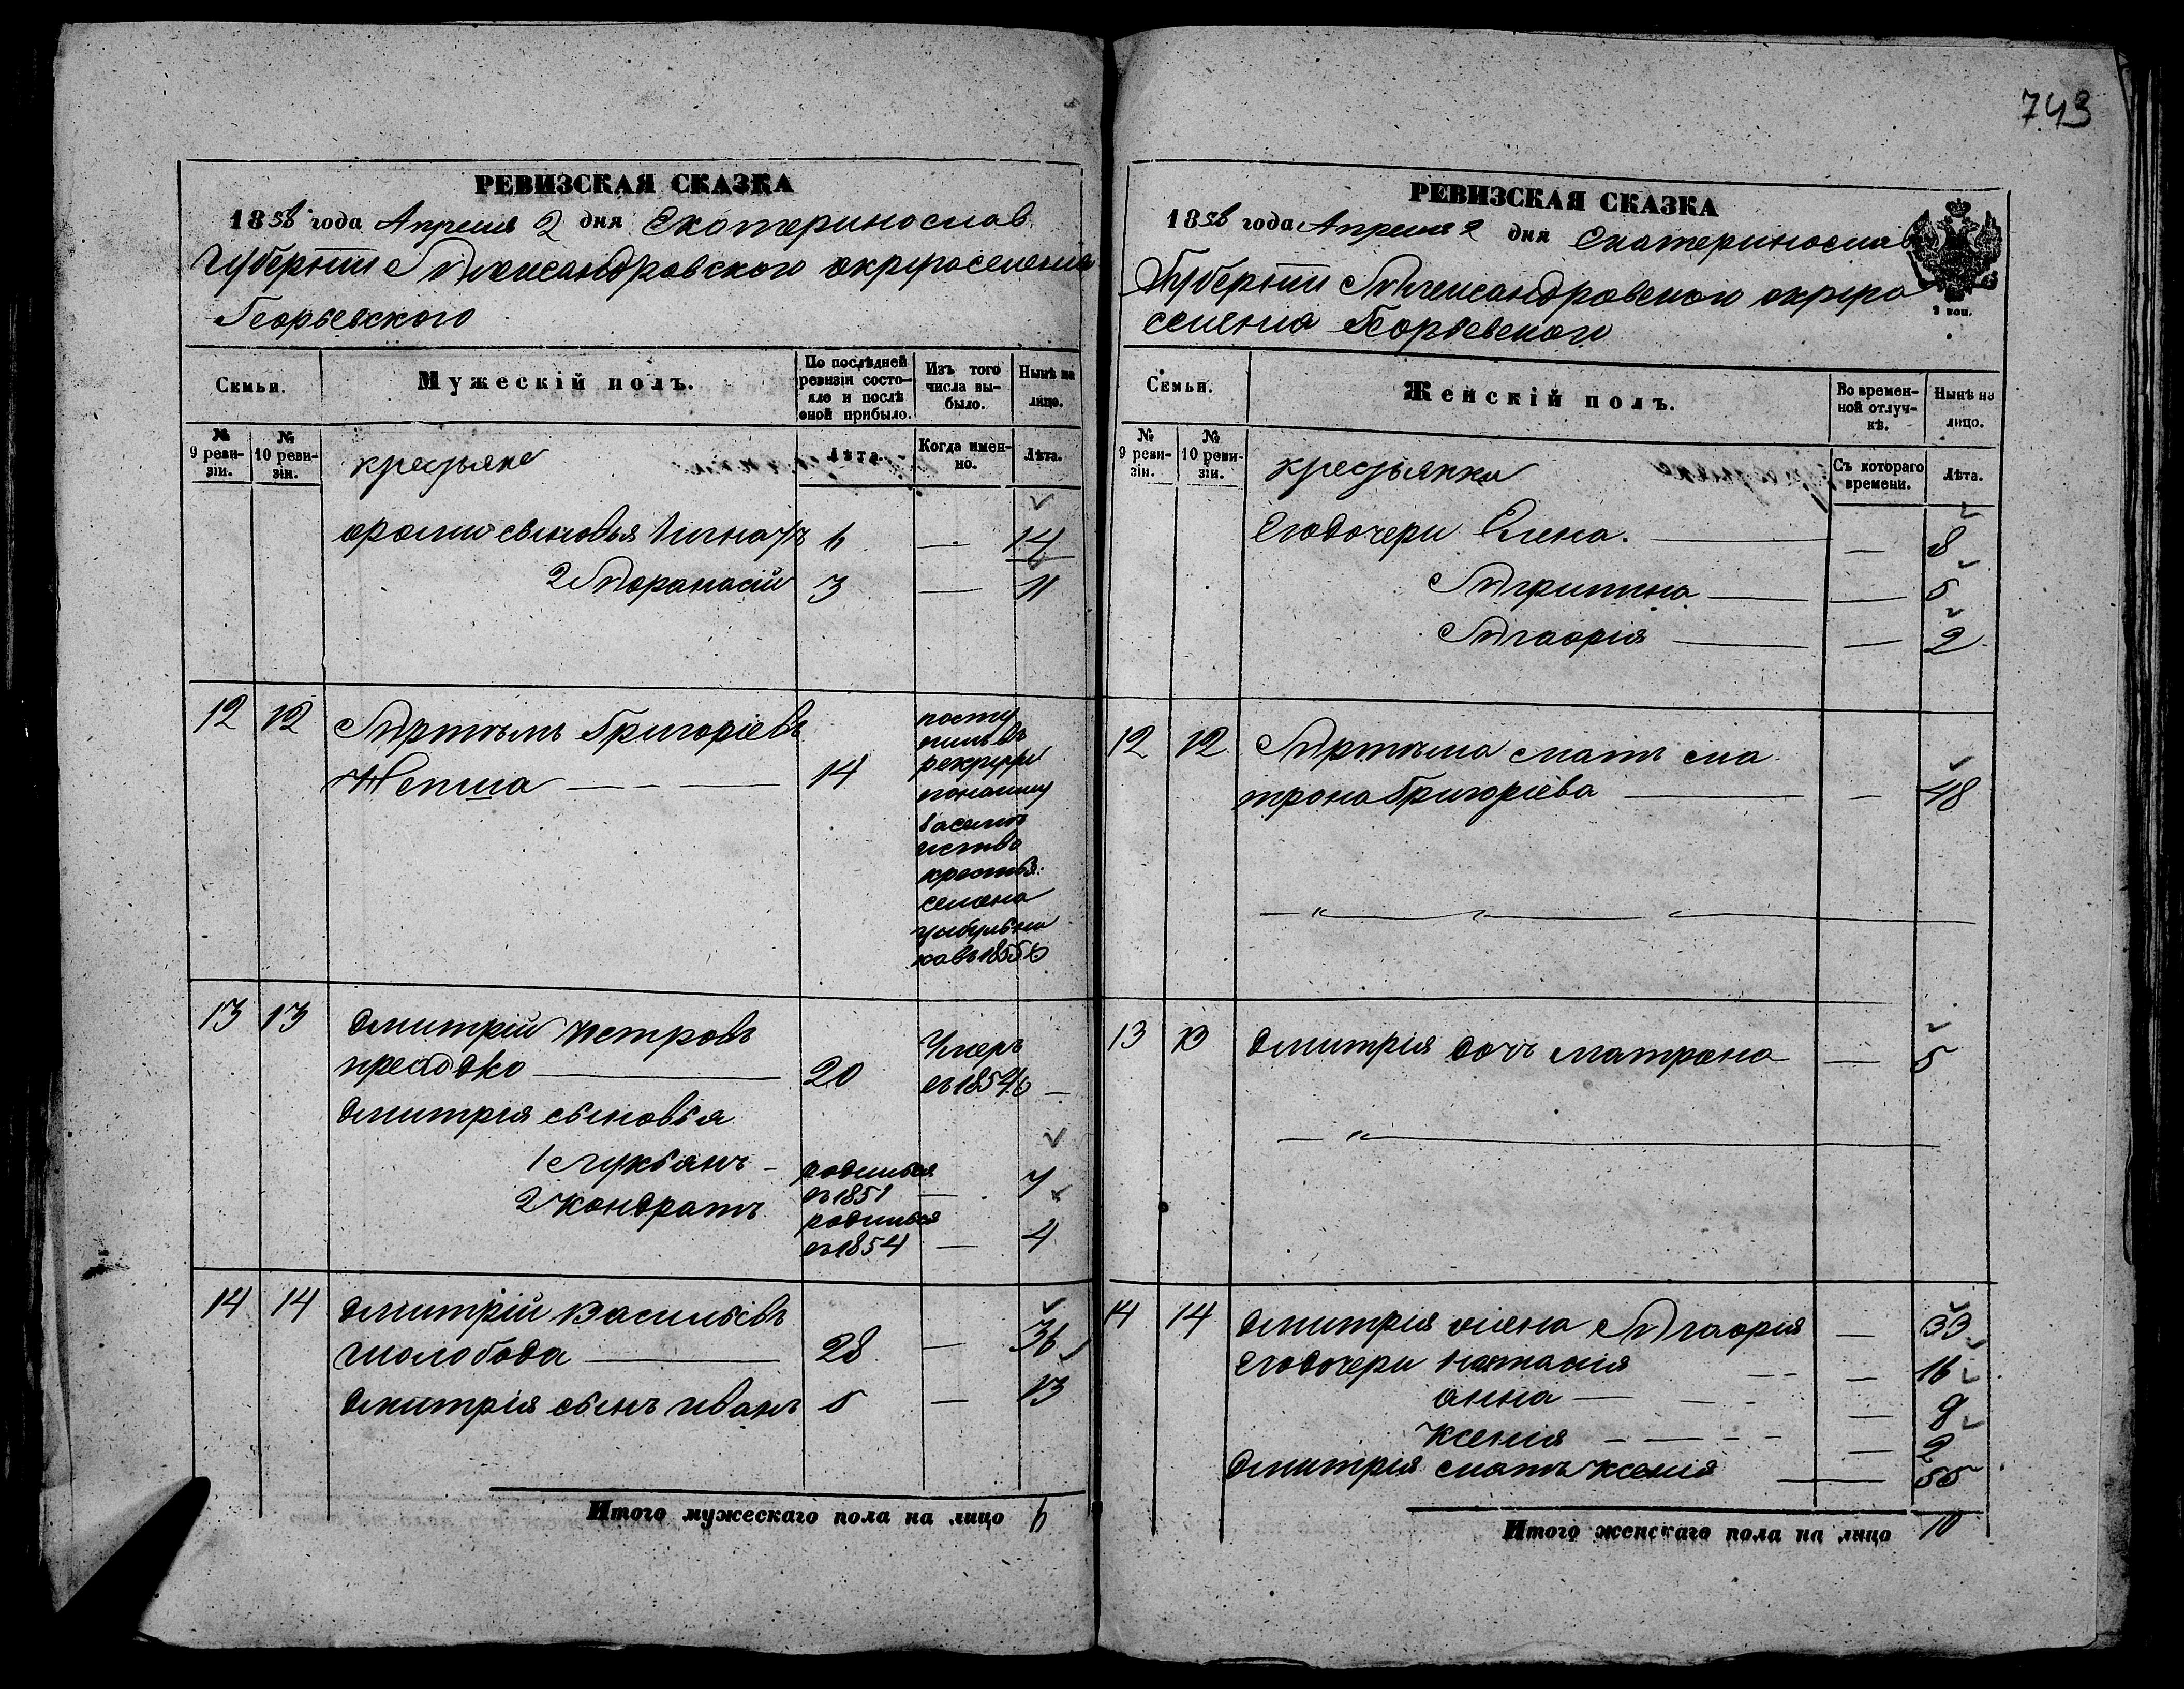 743
РЕВИЗСКАЯ СКАЗКА
1858 года Апреля 2 дня Екатеринослав
Губернiи Александровского округа селения
Георьевского
Семьи.
Мужескiй полъ.
По послѣдней ревизiи состояло и послѣ оной прибыло.
Изъ того числа выбыло.
Нынѣ на лицо.
№ 9 ревизiи.
№ 10 ревизiи.
крестьяне
Лѣта.
Когда именно.
Лѣта.
сыновья 1 Игнатъ 6 — 14
2 Афанасiй 3 — 11
12 12 Артемъ Григорiевъ
Жепша — 14
поступилъ въ
рекруты
крестья:
семена
цыбульни
ка въ 1855 г
13 13 Дмитрiй Петровъ
20
Умеръ
въ 1854 г —
Дмитрия сыновья
1 Лукьянъ - родился въ 1851 — 7
2 Кондратъ родился въ 1854 — 4
14 14 Дмитрiй Васильевъ
Шолобода — 28 — 36
Дмитрiя сынъ иванъ 5 — 13
Итого мужескаго пола на лицо 6
РЕВИЗСКАЯ СКАЗКА
1858 года Апреля 2 дня Екатеринослав
Губернiи Александровского округа
селения Георьевского
2 коп.
Семьи.
Женскiй полъ.
Во временной отлучкѣ.
Нынѣ на лицо.
№ 9 ревизiи.
№ 10 ревизiи.
крестьянки
Съ котораго времени.
Лѣта.
Его дочери Елена. — 8
Агрипина — — 5
Агафiя — — 2
12 12 Артема мать ма
трона Григорiева — — 48
13 13 Дмитрiя дочь матрона — 5
14 14 Дмитрия жена Агафiя — 33
Его дочери Настасия — 16
анна — — 9
Ксенiя — — 2
Дмитрия мать ксения — 55
Итого женскаго пола на лицо 10